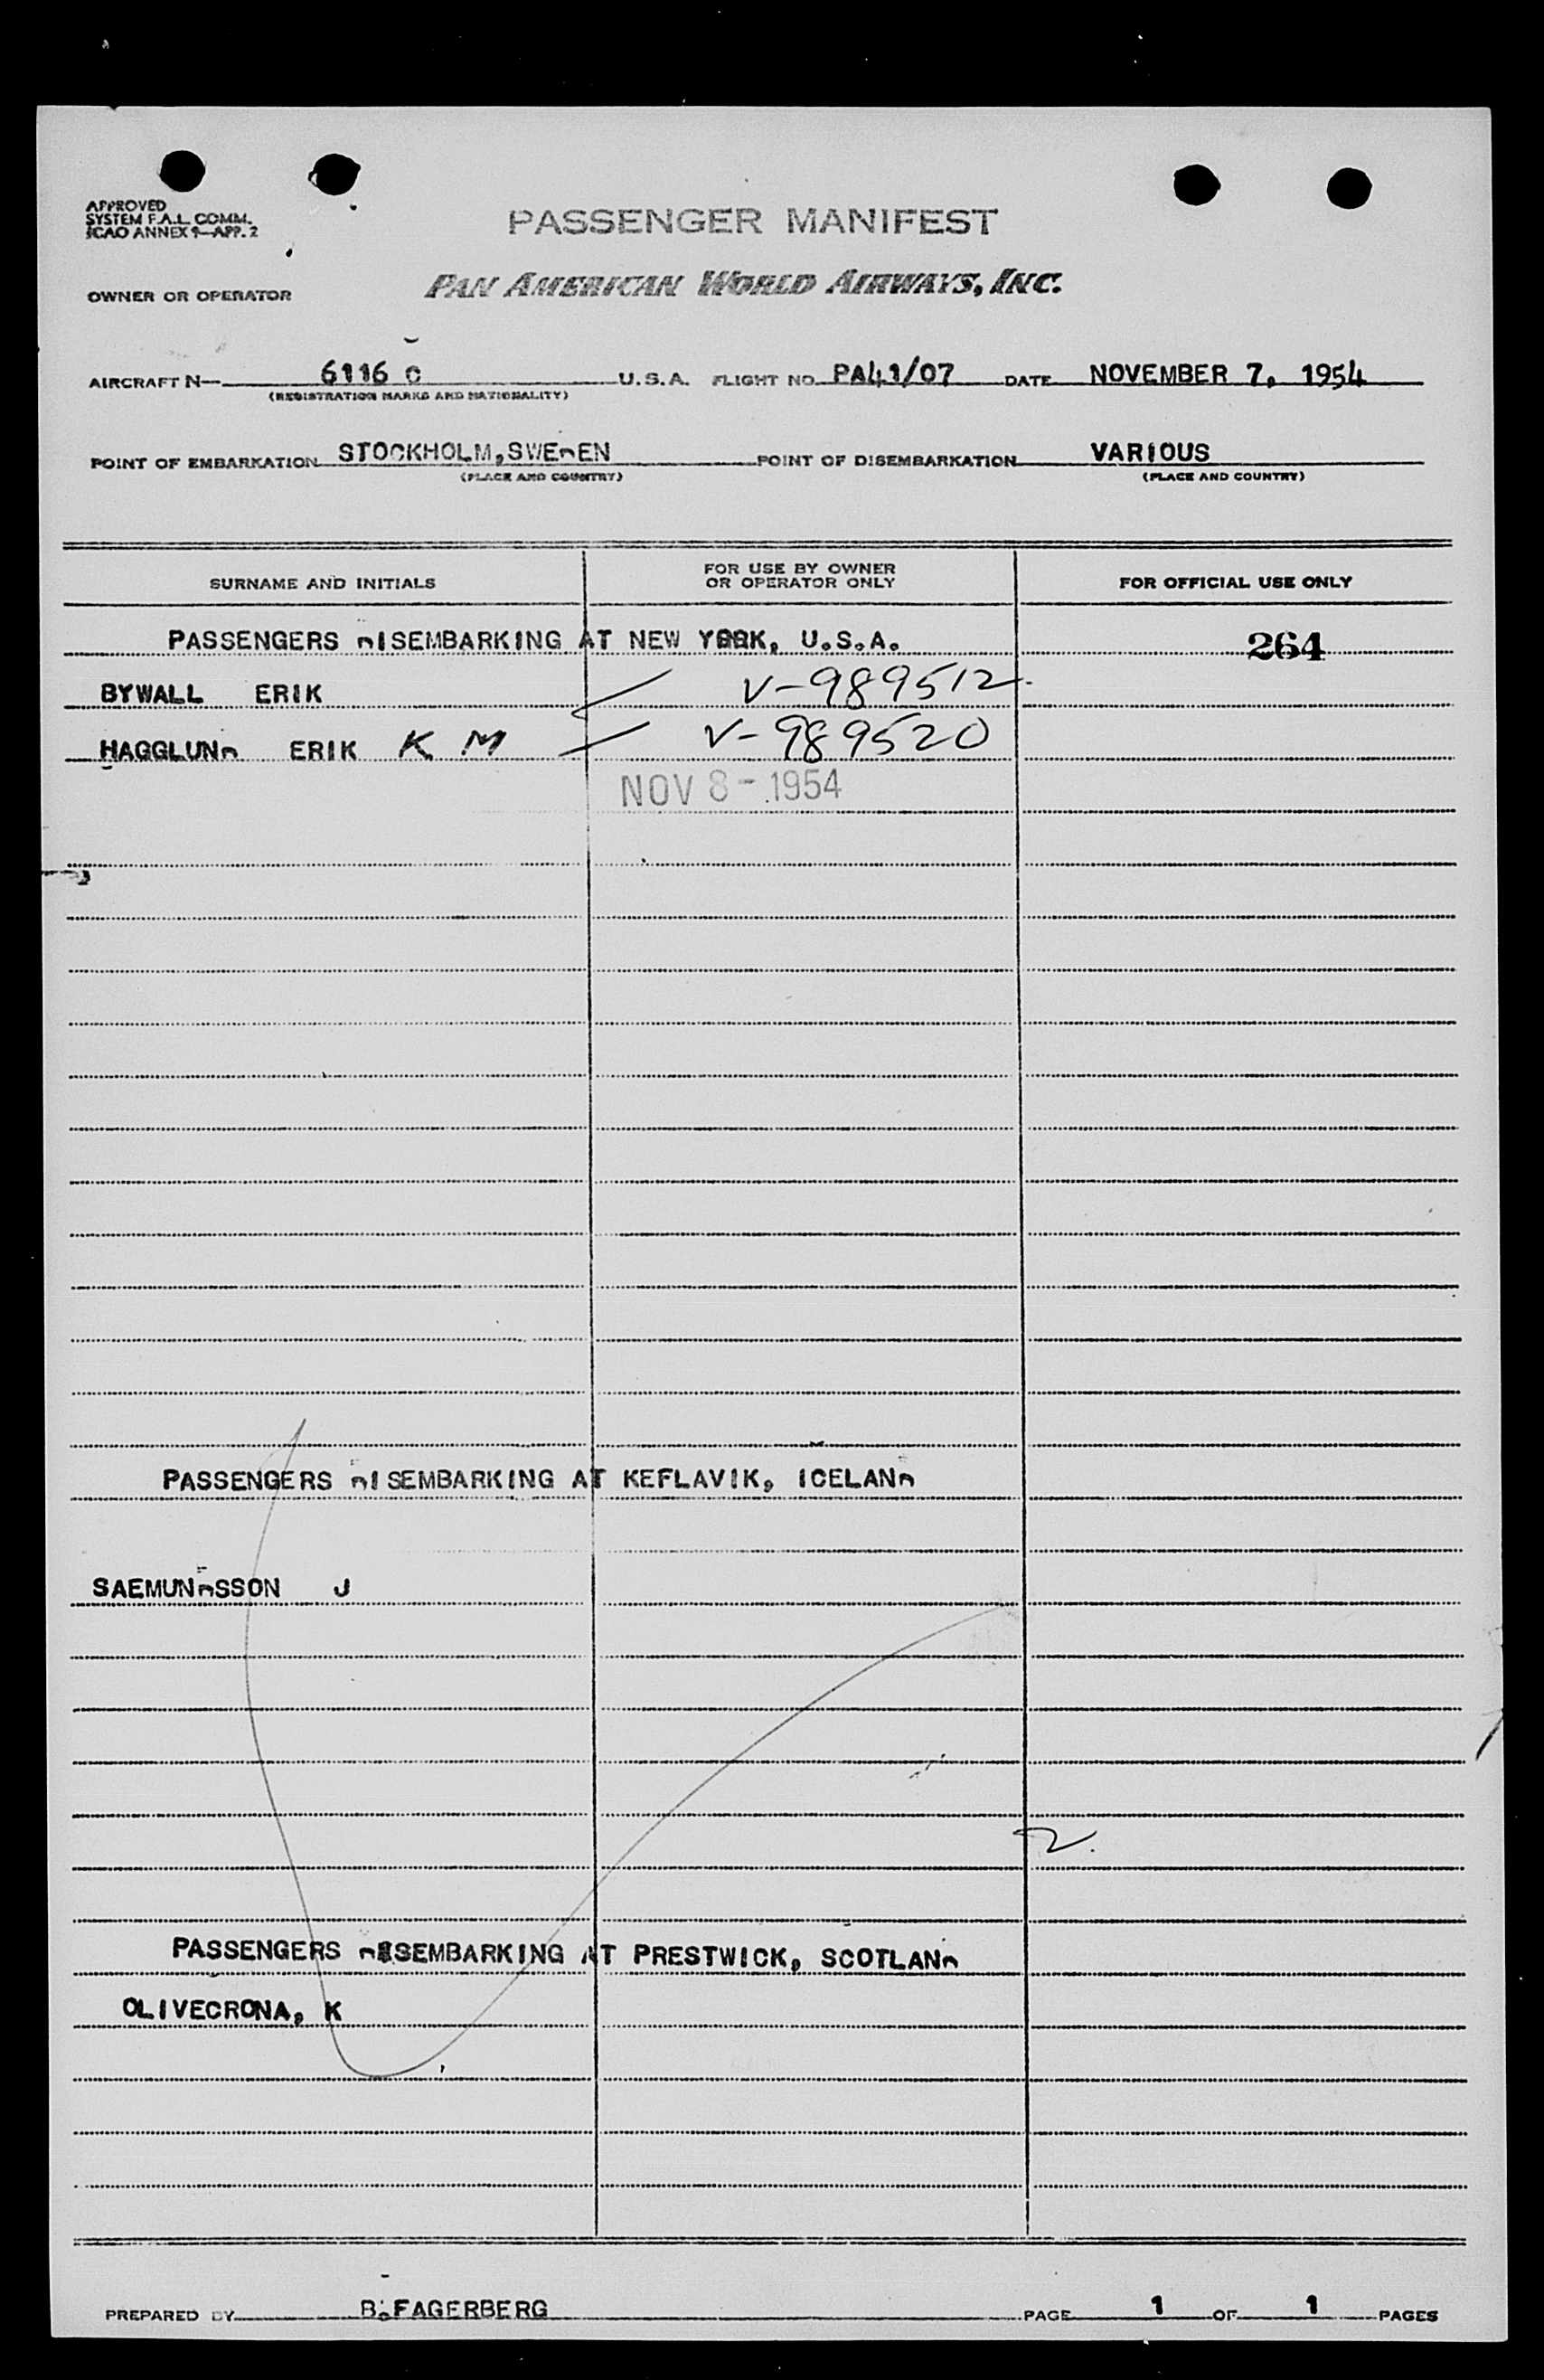 APPROVED
SYSTEM F.A.L. COMM.
ICAO ANNEX 9—APP. 2
PASSENGER MANIFEST
OWNER OR OPERATOR PAN AMERICAN WORLD AIRWAYS, INC.
AIRCRAFT N— 6116 C U.S.A. FLIGHT NO. PA41/07 DATE NOVEMBER 7, 1954
(REGISTRATION MARKS AND NATIONALITY)
POINT OF EMBARKATION STOCKHOLM, SWEDEN POINT OF DISEMBARKATION VARIOUS
(PLACE AND COUNTRY) (PLACE AND COUNTRY)
SURNAME AND INITIALS FOR USE BY OWNER OR OPERATOR ONLY FOR OFFICIAL USE ONLY
PASSENGERS DISEMBARKING AT NEW YORK, U.S.A. 264
BYWALL ERIK V-989512
HAGGLUND ERIK K M V-989520
NOV 8 - 1954
PASSENGERS DISEMBARKING AT KEFLAVIK, ICELAND
SAEMUNDSSON J
2.
PASSENGERS DISEMBARKING AT PRESTWICK, SCOTLAND
OLIVECRONA, K
PREPARED BY B.FAGERBERG PAGE 1 OF 1 PAGES